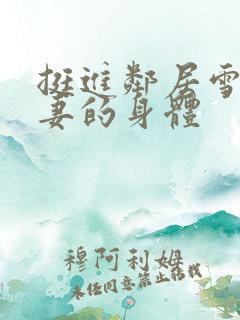 挺進鄰居雪
妻的身體
穆阿利姆
未经同意禁止转载